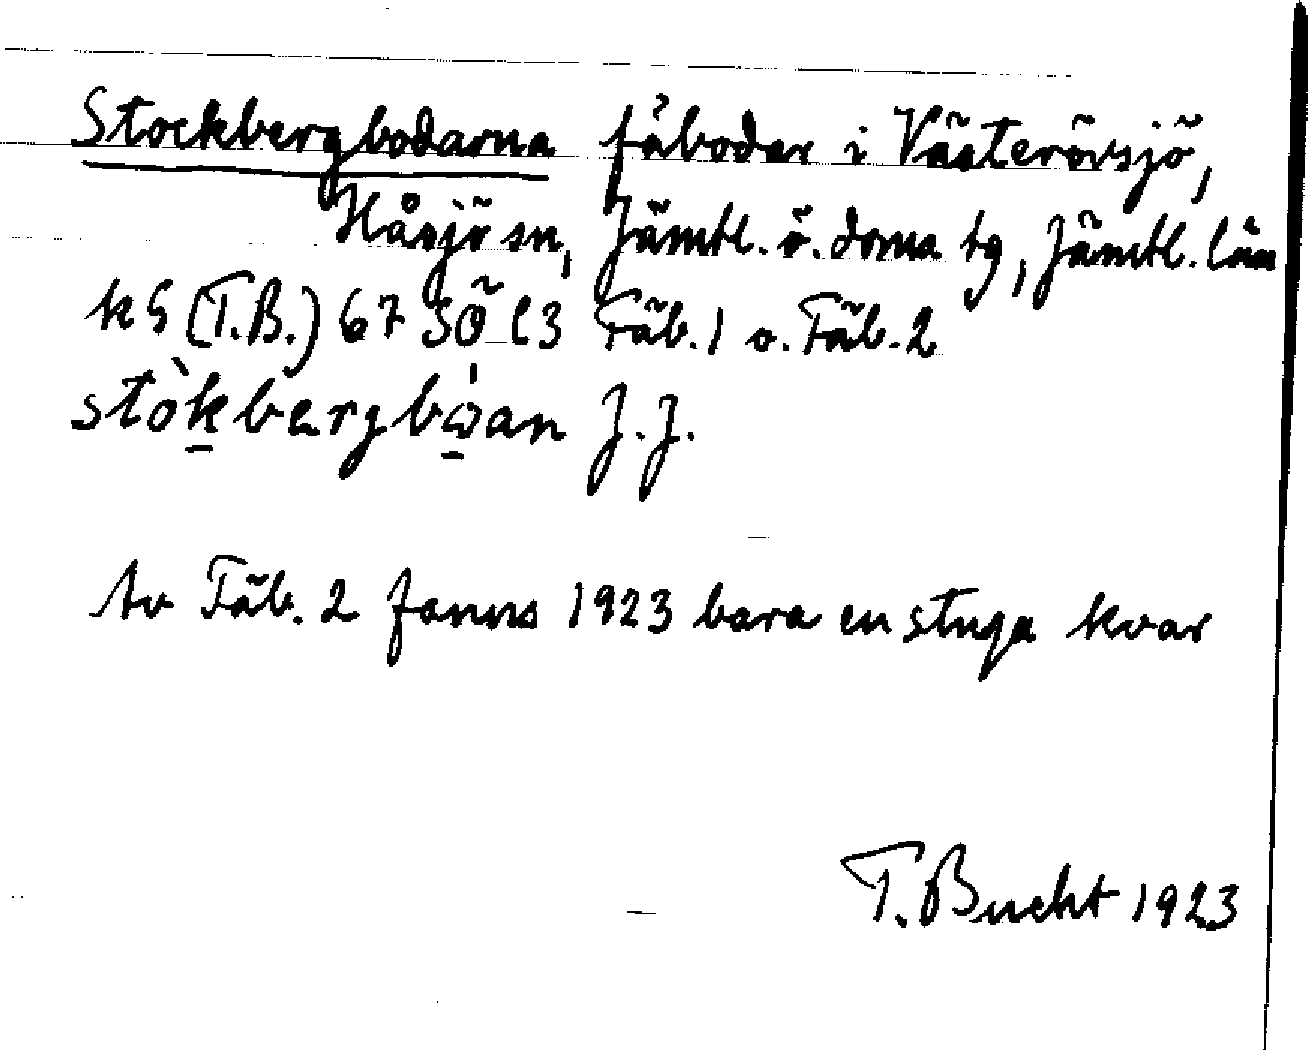 Stockbergbodarna fäbodar i Västerövsjö,
Håsjö sn, Jämtl. ö. doms tg, Jämtl. län
kS (T.B.) 67 SÖ l3 Fäb. 1 o. Fäb. 2
stòkbergbωan J.J.
Av Fäb. 2 fanns 1923 bara en stuga kvar
T. Bucht 1923